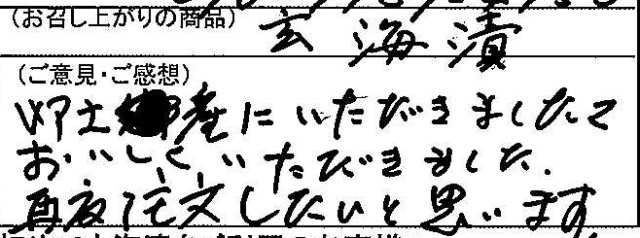 (お召し上がりの商品) 玄海漬
(ご意見・ご感想)
御土産にいただきましたて
おいしくいただきました.
再度注文したいと思います